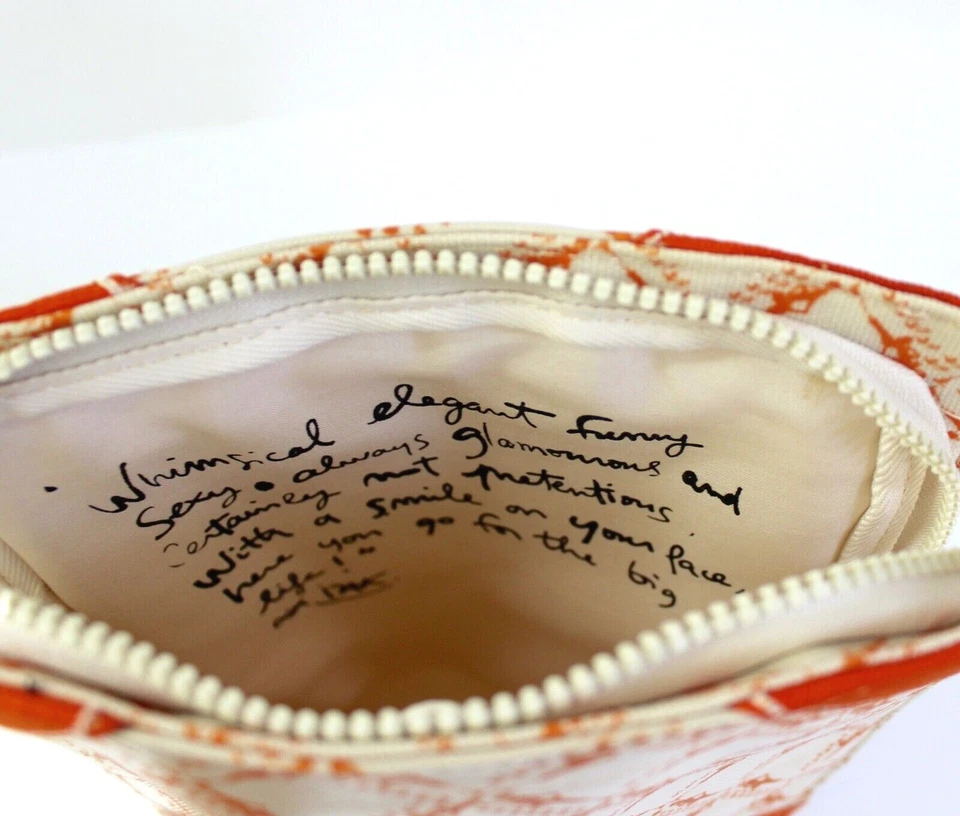 Whimsical elegant funny
Sexy. always glamourous and
certainly not pretentious
With a smile on your face,
here you go for the big
life!"